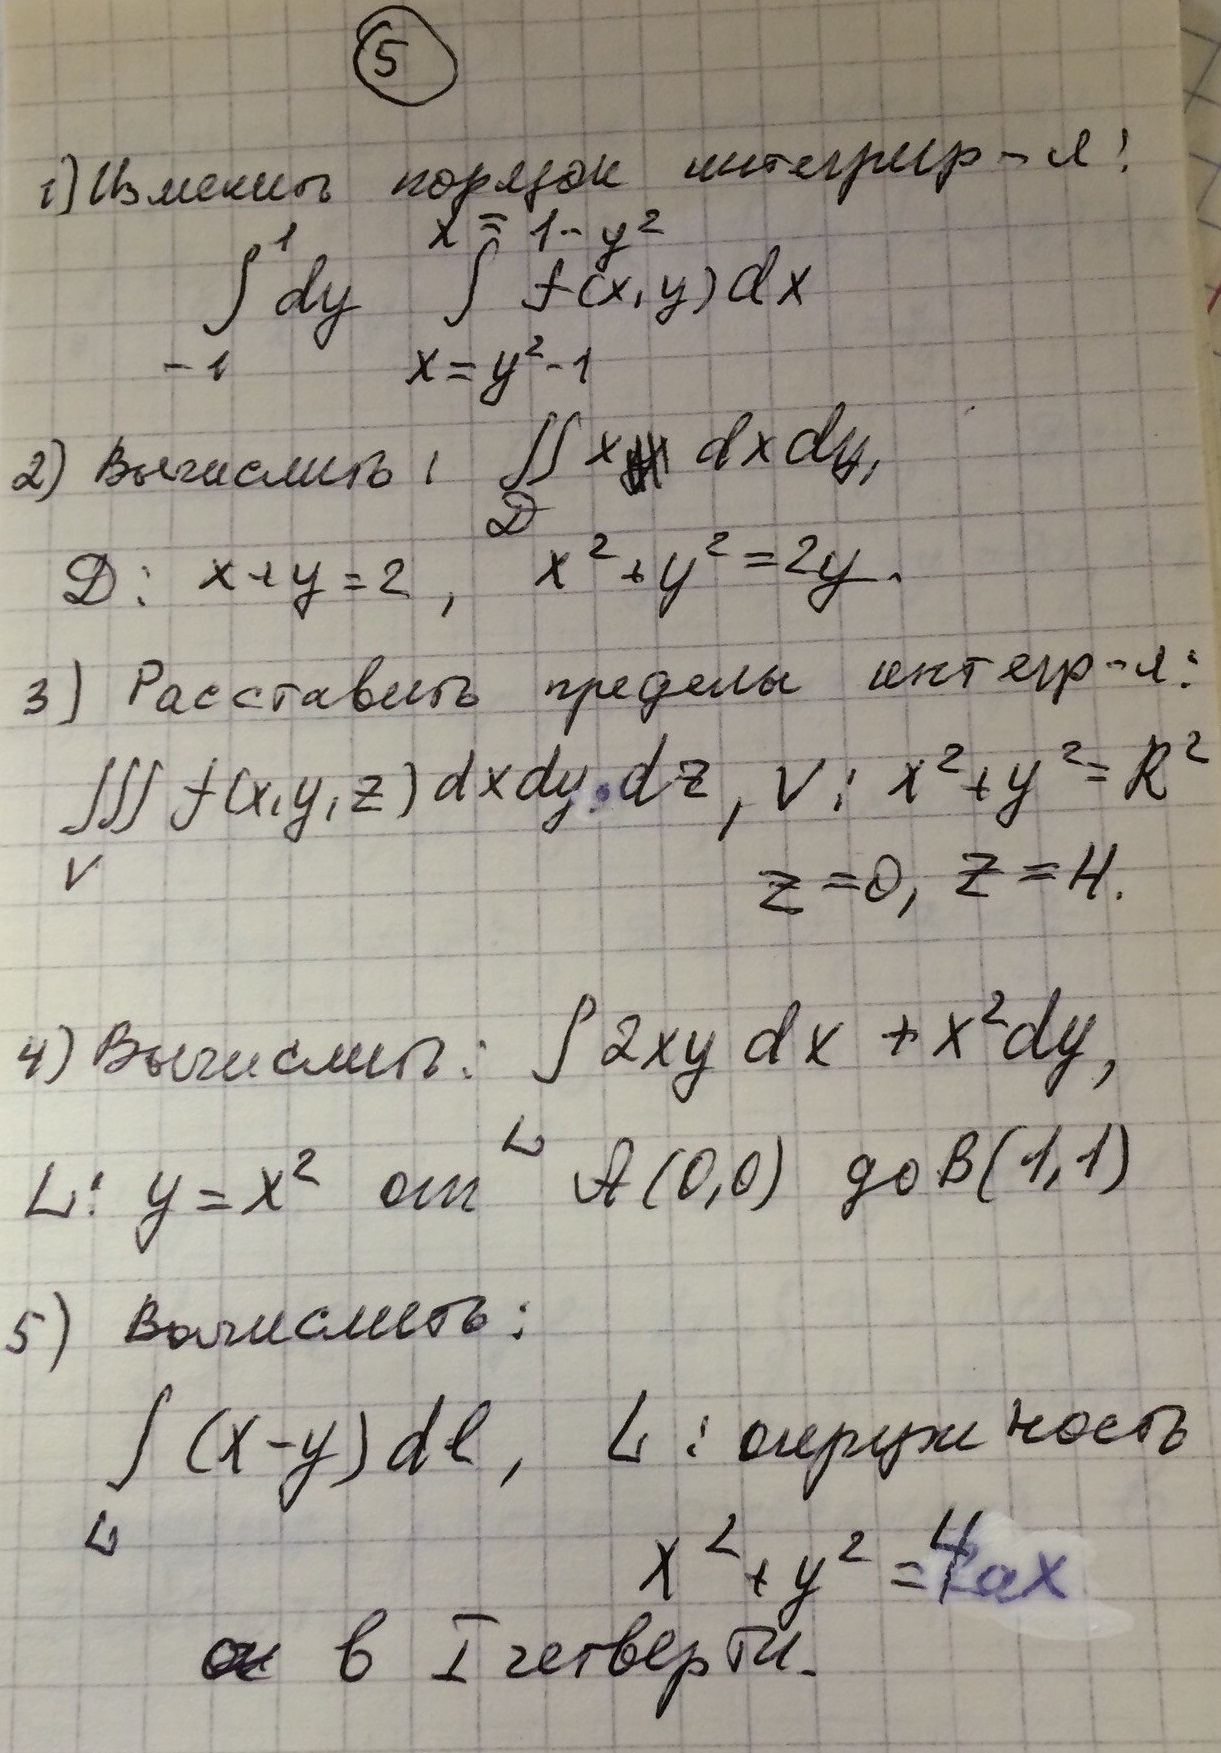 5
1) Изменить порядок интегрир-я:
∫₋₁¹ dy ∫_{x=y²-1}^{x=1-y²} f(x,y)dx
2) Вычислить: ∬_D x dxdy,
D: x+y=2, x²+y²=2y.
3) Расставить пределы интегр-я:
∭_V f(x,y,z)dxdy·dz, V: x²+y²=R²
z=0, z=H.
4) Вычислить: ∫_L 2xy dx + x²dy,
L: y=x² от A(0,0) до B(1,1)
5) Вычислить:
∫_L (x-y)dl, L: окружность
x²+y²=4ax
в I четверти.